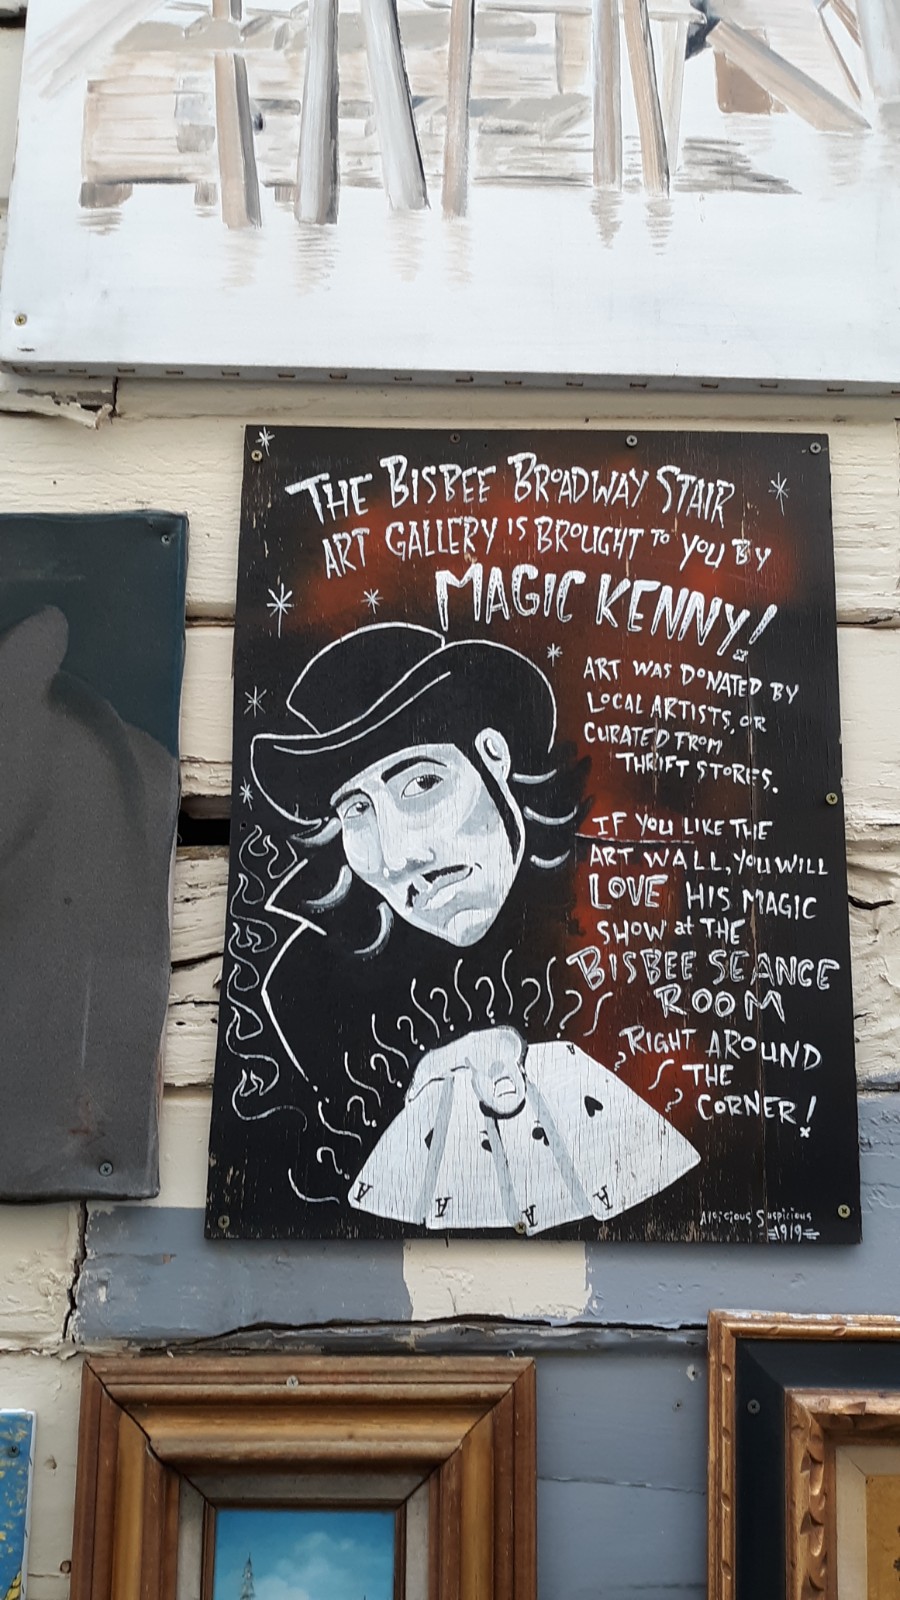 THE BISBEE BROADWAY STAIR
ART GALLERY IS BROUGHT TO YOU BY
MAGIC KENNY!
ART WAS DONATED BY
LOCAL ARTISTS, OR
CURATED FROM
THRIFT STORES.
IF YOU LIKE THE
ART WALL, YOU WILL
LOVE HIS MAGIC
SHOW at THE
BISBEE SEANCE
ROOM
RIGHT AROUND
THE
CORNER!
A
A A A A
Suspicious
1919